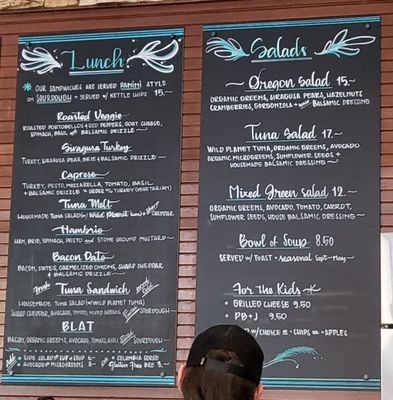 Lunch
* OUR SANDWICHES ARE SERVED PANINI STYLE
ON SOURDOUGH + SERVED W/ KETTLE CHIPS 15.-
Roasted Veggie
ROASTED PORTOBELLOS + RED PEPPERS, GOAT CHEESE,
SPINACH, BASIL AND BALSAMIC DRIZZLE
Siragusa Turkey
TURKEY, SIRAGUSA PEAR, BRIE + BALSAMIC DRIZZLE
Caprese
TURKEY, PESTO, MOZZARELLA, TOMATO, BASIL
+ BALSAMIC DRIZZLE ORDER W/O TURKEY (VEGETARIAN)
Tuna Melt
HOUSEMADE TUNA SALAD (w/ Wild Planet tuna) + SHARP CHEDDAR
Hambrio
HAM, BRIE, SPINACH, PESTO AND STONE GROUND MUSTARD
Bacon Date
BACON, DATES, CARMELIZED ONIONS, SHARP CHEDDAR
+ BALSAMIC DRIZZLE
fresh Tuna Sandwich
HOUSEMADE TUNA SALAD (W/ WILD PLANET TUNA)
SHARP CHEDDAR, AVOCADO, TOMATO, MIXED GREENS SOURDOUGH
BLAT
BACON, ORGANIC GREENS, AVOCADO, TOMATO, AIOLI SOURDOUGH
SIDE SALAD OR CUP OF SOUP 6-
AVOCADO OR MICROGREENS
COLUMBIA GORGE
Gluten Free BRD
Salads
Oregon Salad 15.-
ORGANIC GREENS, SIRAGUSA PEARS, HAZELNUTS
CRANBERRIES, GORGONZOLA + BALSAMIC DRESSING
Tuna Salad 17.-
WILD PLANET TUNA, ORGANIC GREENS, AVOCADO
ORGANIC MICROGREENS, SUNFLOWER SEEDS +
HOUSEMADE BALSAMIC DRESSING
Mixed Green Salad 12-
ORGANIC GREENS, AVOCADO, TOMATO, CARROT,
SUNFLOWER SEEDS, HOUSE BALSAMIC DRESSING
Bowl of Soup 8.50
SERVED W/ TOAST + seasonal Sept-May
For the Kids
GRILLED CHEESE 9.50
PB + J 9.50
W/ CHOICE OF CHIPS OR APPLES